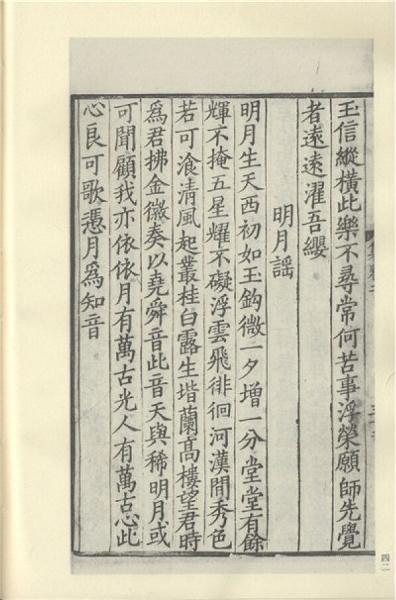 玉信縱橫此樂不尋常何苦事浮榮願師先覺
者遠遠濯吾纓
明月謡
明月生天西初如玉鈎微一夕增一分堂堂有餘
輝不掩五星耀不礙浮雲飛徘徊河漢間秀色
若可飡清風起叢桂白露生堦蘭高樓望君時
為君拂金徽奏以堯舜音此音天與稀明月或
可聞顧我亦依依月有萬古光人有萬古心此
心良可歌憑月為知音
四二